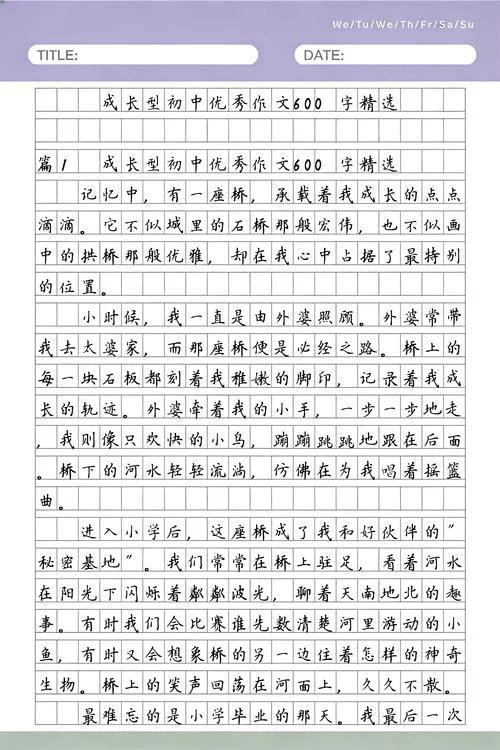 We/Tu/We/Th/Fr/Sa/Su
TITLE: DATE:
成长型初中优秀作文600 字精选
篇1 成长型初中优秀作文600 字精选
记忆中，有一座桥，承载着我成长的点点
滴滴。它不似城里的石桥那般宏伟，也不似画
中的拱桥那般优雅，却在我心中占据了最特别
的位置。
小时候，我一直是由外婆照顾。外婆常带
我去太婆家，而那座桥便是必经之路。桥上的
每一块石板都刻着我稚嫩的脚印，记录着我成
长的轨迹。外婆牵着我的小手，一步一步地走
，我则像只欢快的小鸟，蹦蹦跳跳地跟在后面
。桥下的河水轻轻流淌，仿佛在为我唱着摇篮
曲。
进入小学后，这座桥成了我和好伙伴的"
秘密基地"。我们常常在桥上驻足，看着河水
在阳光下闪烁着粼粼波光，聊着天南地北的趣
事。有时我们会比赛谁先数清楚河里游动的小
鱼，有时又会想象桥的另一边住着怎样的神奇
生物。桥上的笑声回荡在河面上，久久不散。
最难忘的是小学毕业的那天。我最后一次